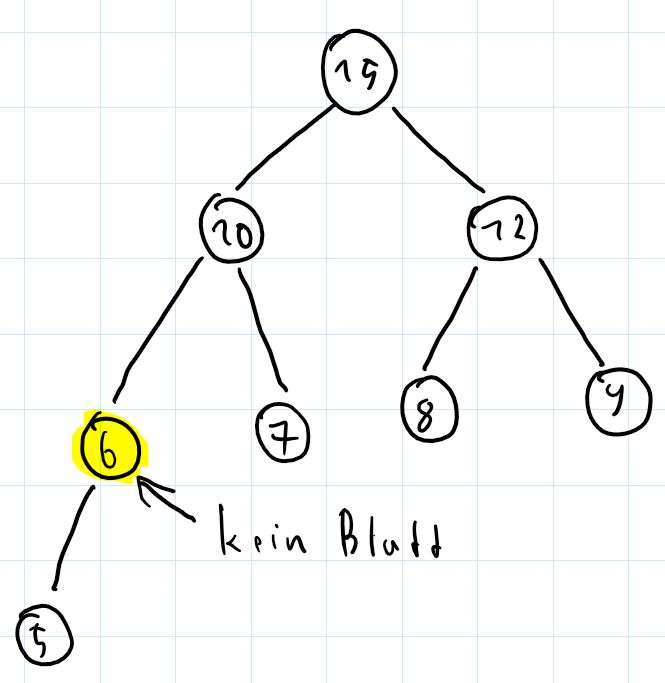 15
10 12
6 7 8 9
kein Blatt
5